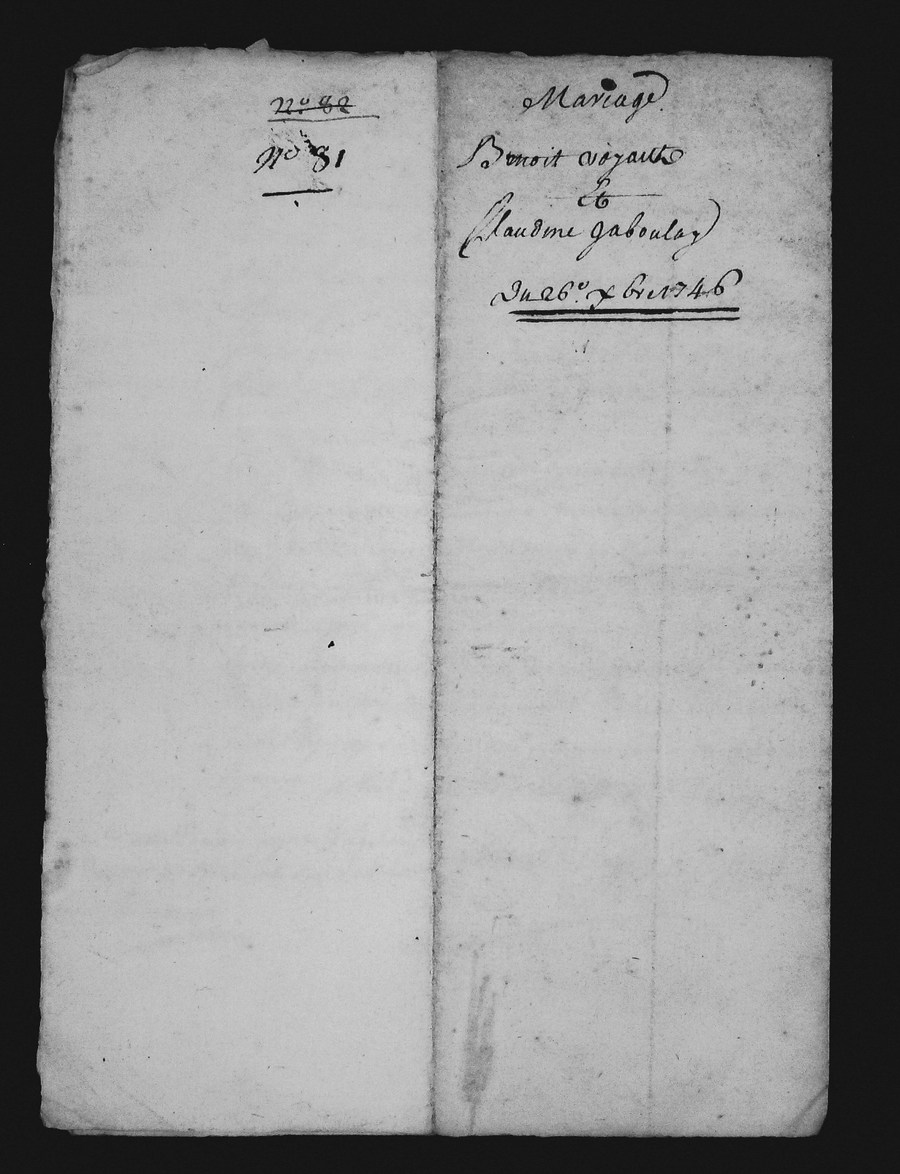 nº 82
nº 81
Mariage
Benoit voyant
Et
Claudine gaboulay
Du 26e. xbre 1746